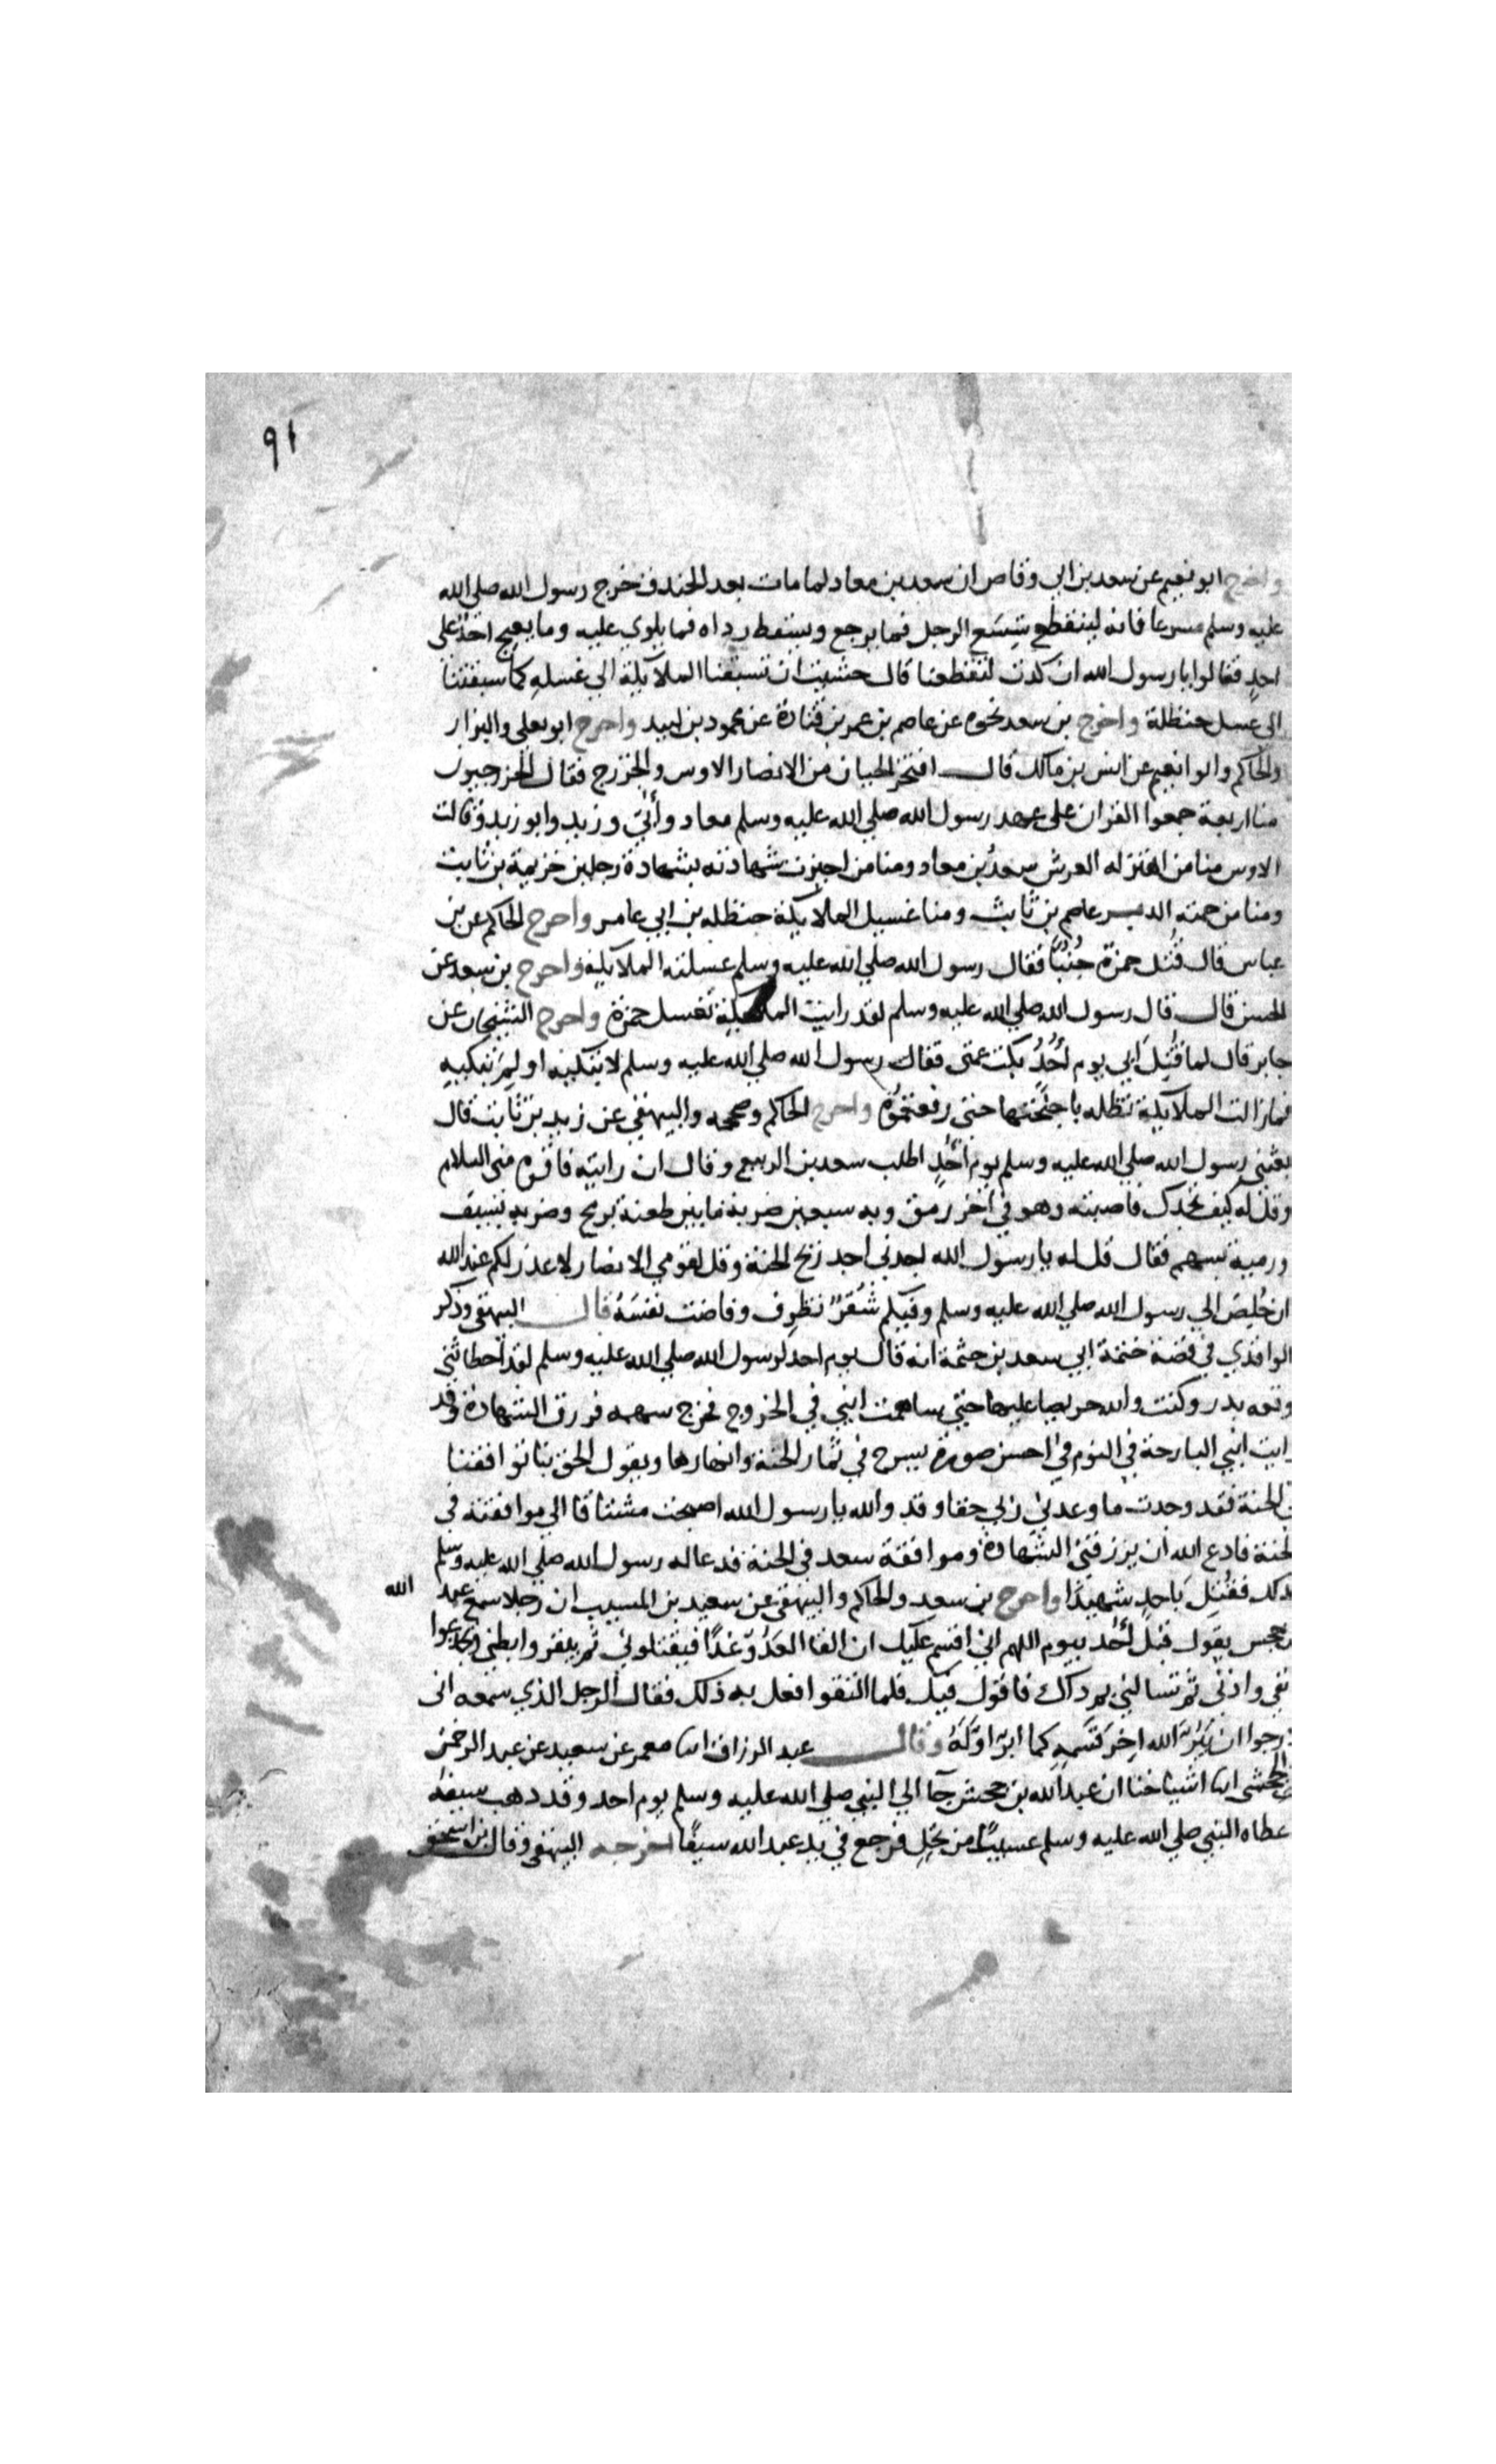 ٩١
واخرج ابو نعيم عن سعد بن ابى وقاص ان سعد بن معاد لما مات بعد الخندق خرج رسول الله صلى الله
عليه وسلم مسرعا فانه لينقطع شِسَع الرجل فما يرجع ويسقط رداه فما يلوي عليه وما يعيج احد على
احدٍ فقالوا يا رسول الله ان كدت لتقطعنا قال خشيت ان تسبقنا الملايكة الي غسله كما سبقتنا
الى غسل حنظلة واخرج بن سعد نحوه عن عاصم بن عمر بن قتادة عن محمود بن لبيد واخرج ابو يعلى والبزار
والحاكم وابو نعيم عن انس بن مالك قال افتخر الحيان من الانصار الاوس والخزرج فقال الخزرجيون
منا اربعة جمعوا القران على عهد رسول الله صلي الله عليه وسلم معاد وأُبَيّ وزيد وابو زيد وقالت
الاوس منا من اهتز له العرش سعدُ بن معاد ومنا من اجيزت شهادته بشهادة رجلين خزيمة بن ثابت
ومنا من حمته الدبر عاصم بن ثابت ومنا غسيل الملايكة حنظله بن ابي عامر واخرج الحاكم عن بن
عباس قال قُتل حمزة جُنُبًا فقال رسول الله صلي الله عليه وسلم غسلته الملايكة واخرج بن سعد عن
الحسن قال قال رسول الله صلي الله عليه وسلم لقد رايت الملايكة تغسل حمزة واخرج الشيخان عن
جابر قال لما قُتِلَ ابي يوم أُحُدٍ بكت عمتى فقال رسول الله صلي الله عليه وسلم لا تبكيه او لِمَ تبكيه
فما زالت الملايكة تظله باجنحتها حتى رفعتموُه واخرج الحاكم وصححه والبيهقي عن زيد بن ثابت قال
بعثني رسول الله صلي الله عليه وسلم يوم أُحُدٍ اطلب سعد بن الربيع وقال ان رايته فاقره منى السلام
وقل له كيف تجدك فاصبته وهو في اخر رمق وبه سبعين ضربة ما بين طعنة برمح وضربه بسيف
ورمية بسهم فقال قل له يا رسول الله اجدني اجد ريح الجنة وقل لقومي الانصار لا عذر لكم عند الله
ان خُلِصَ الي رسول الله صلي الله عليه وسلم وفيكم شُفرٌ نظرِف وفاضت نفسَهُ قال البيهقى وذكر
الواقدي في قصة خثمة ابي سعد بن خثمة انه قال يوم احد لرسول الله صلي الله عليه وسلم لقد اخطاتنى
وقعه بدر وكنت والله حريصا عليها حتى ساهمت ابني في الخروج فخرج سهمه فرزق الشهادة وقد
رايت ابني البارحة في النوم في احسن صورة يسرح في ثمار الجنة وانهارها ويقول الحق بنا توافقنا
في الجنة فقد وجدت ما وعدني ربي حقا وقد والله يا رسول الله اصبحت مشتاقا الي موافقته في
الجنة فادع الله ان يرزقني الشهادة وموافقة سعد في الجنة فدعا له رسول الله صلي الله عليه وسلم
بذلك فقُتِلَ باحدٍ شهيدًا واخرج بن سعد والحاكم والبيهقى عن سعيد بن المسيب ان رجلا سمع عبد الله
بن جحس يقول قبل أُحُد بيوم اللهم اني اقسم عليك ان القا العَدُوّ غدًا فيقتلوني ثم يبقروا بطني ويجدعوا
انفي واذنى ثم تسالني بم ذاك فاقول فيك فلما التقوا فعل به ذلك فقال الرجل الذي سمعه انى
ارجوا ان يَبَرَّ الله اخِر قَسَمهِ كما ابرّ اوَّلَهُ وقال عبد الرزاق انا معمر عن سعيد عن عبد الرحمن
الجحشى انا اشياخنا ان عبد الله بن جحش جآ الي النبي صلي الله عليه وسلم يوم احد وقد دهب سيفه
فاعطاه النبي صلي الله عليه وسلم عسيبًا من نخل فرجع في يد عبد الله سيفًا اخرجه البيهقى وقال بن اسحق